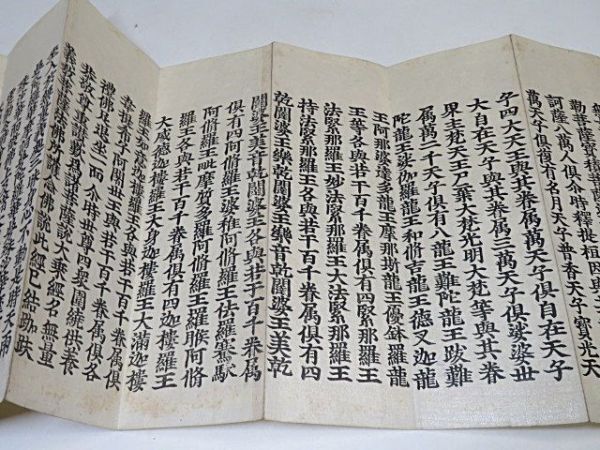 勒菩薩寶積
訶薩八萬人俱尒時釋提桓因
萬天子俱復有名月天子普香天子寶光天
子四大天王與其眷属萬天子俱自在天子
大自在天子與其眷属三萬天子俱娑婆世
界主梵天王尸棄大梵光明大梵等與其眷
属萬二千天子俱有八龍王難陀龍王跋難
陀龍王娑伽羅龍王和脩吉龍王德叉迦龍
王阿那婆達多龍王摩那斯龍王優鉢羅龍
王等各與若干百千眷属俱有四緊那羅王
法緊那羅王妙法緊那羅王大法緊那羅王
持法緊那羅王各與若干百千眷属俱有四
乾闥婆王樂乾闥婆王樂音乾闥婆王美乾
闥婆王美音乾闥婆王各與若干百千眷属
俱有四阿脩羅王婆稚阿脩羅王佉羅騫馱
阿脩羅王毗摩質多羅阿脩羅王羅睺阿脩
羅王各與若干百千眷属俱有四迦樓羅王
大威德迦樓羅王大身迦樓羅王大滿迦樓
羅王如意迦樓羅王各與若干百千眷属俱
韋提希子阿闍世王與若干百千眷属俱各
禮佛足退坐一面尒時世尊四衆圍繞供養
恭敬尊重讃歎為諸菩薩說大乘經名無量
義教菩薩法佛所護念佛說此經已結跏趺
坐入於無量義處三昧身心不動是時天雨